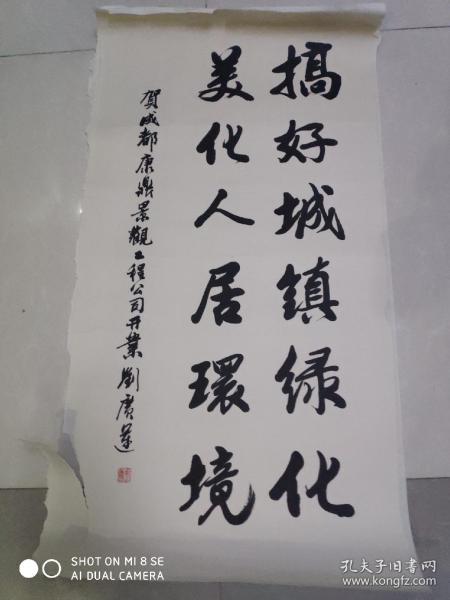 搞好城镇绿化
美化人居環境
贺成都康鼎景觀工程公司开業 劉廣運
SHOT ON MI 8 SE
AI DUAL CAMERA
孔夫子旧书网
www.kongfz.com